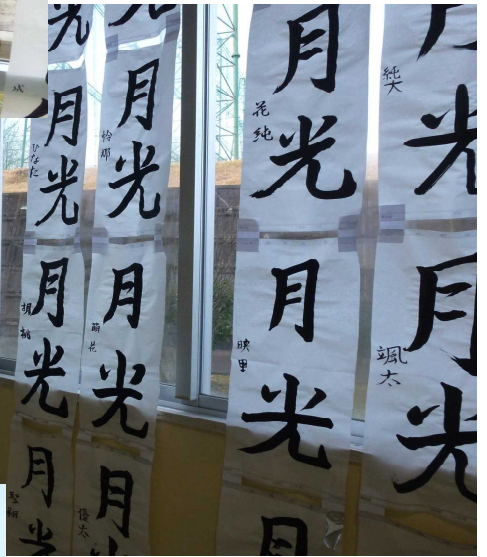 光
月
光
ひなた
月
光
胡桃
月
光
月
光
怜那
月
光
萌花
月
光
優太
月
光
花純
月
光
映里
月
純大
光
月
光
颯太